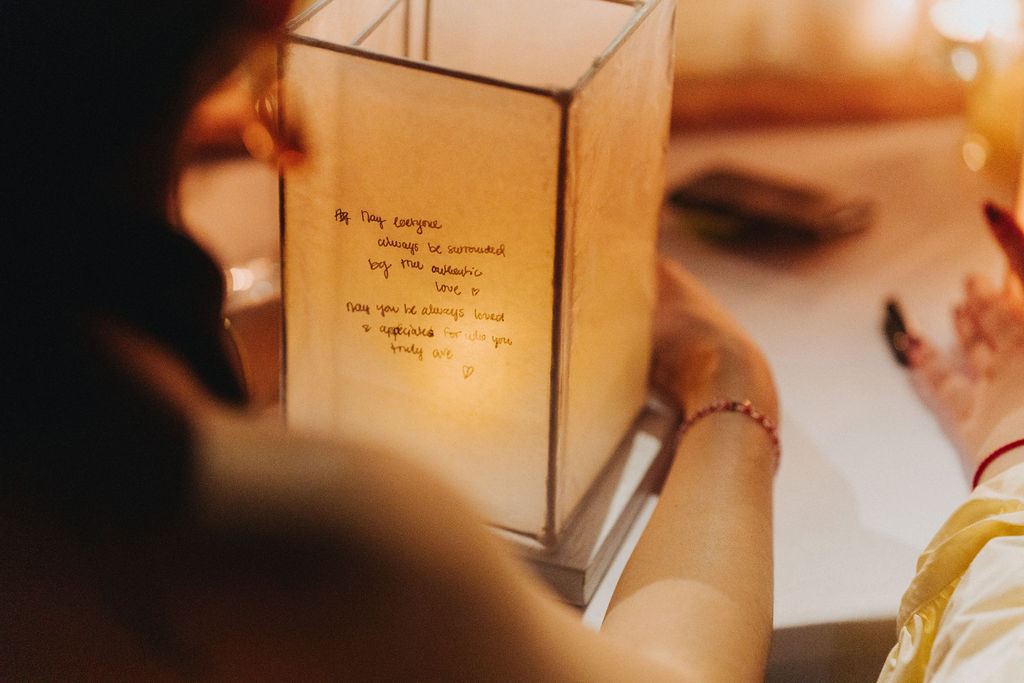 May everyone
always be surrounded
by the authentic
love ♡
May you be always loved
& appreciated for who you
truly are
♡